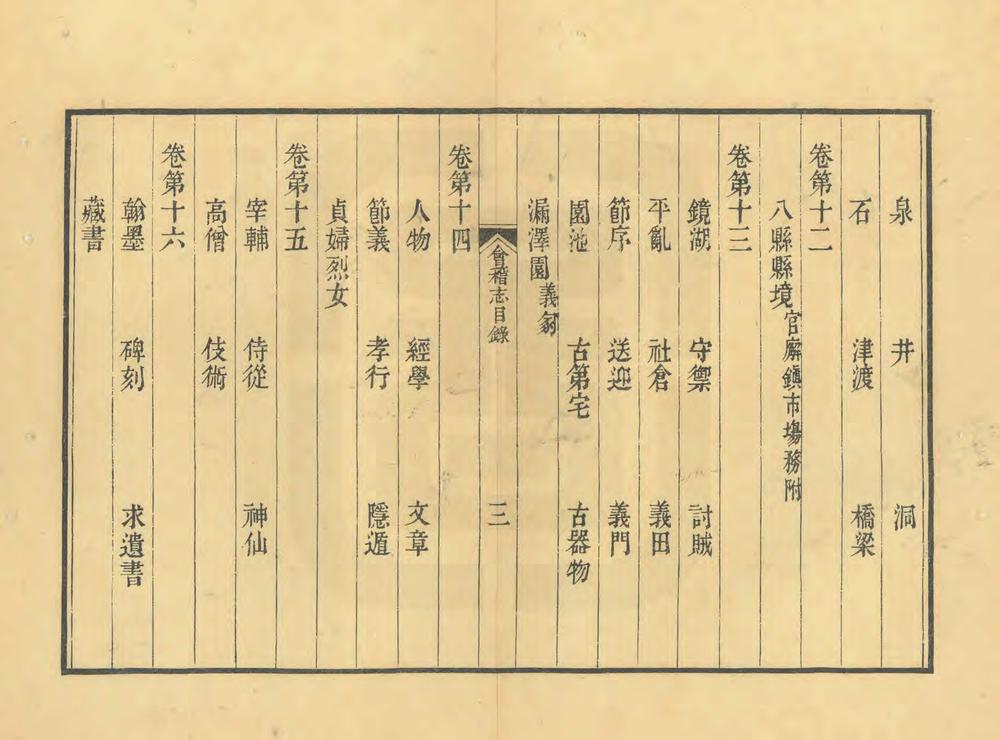 泉 井 洞
石 津渡 橋梁
卷第十二
八縣縣境官廨鎮市場務附
卷第十三
鏡湖 守禦 討賊
平亂 社倉 義田
節序 送迎 義門
園池 古第宅 古器物
漏澤園義冢
會稽志目錄 三
卷第十四
人物 經學 文章
節義 孝行 隱遁
貞婦烈女
卷第十五
宰輔 侍從 神仙
高僧 伎術
卷第十六
翰墨 碑刻 求遺書
藏書